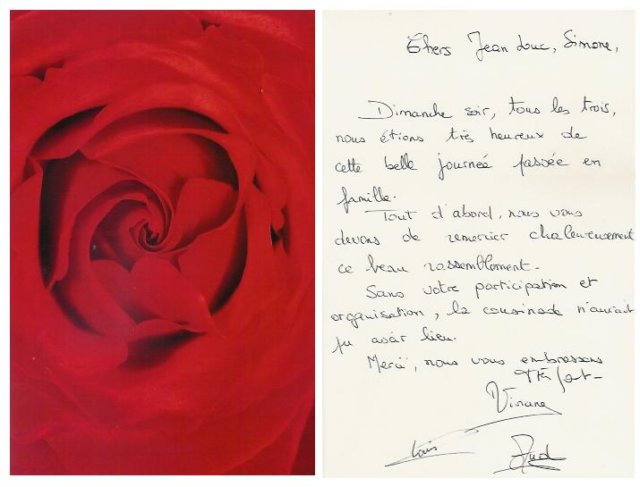 Chers Jean Luc, Simone,
Dimanche soir, tous les trois,
nous étions très heureux de
cette belle journeé passée en
famille.
Tout d'abord, nous vous
devons de remercier chaleureusement
ce beau rassemblement.
Sans votre participation et
organisation, la cousinade n'aurait
pu avoir lieu.
Merci, nous vous embrassons
Très fort -
Viviane